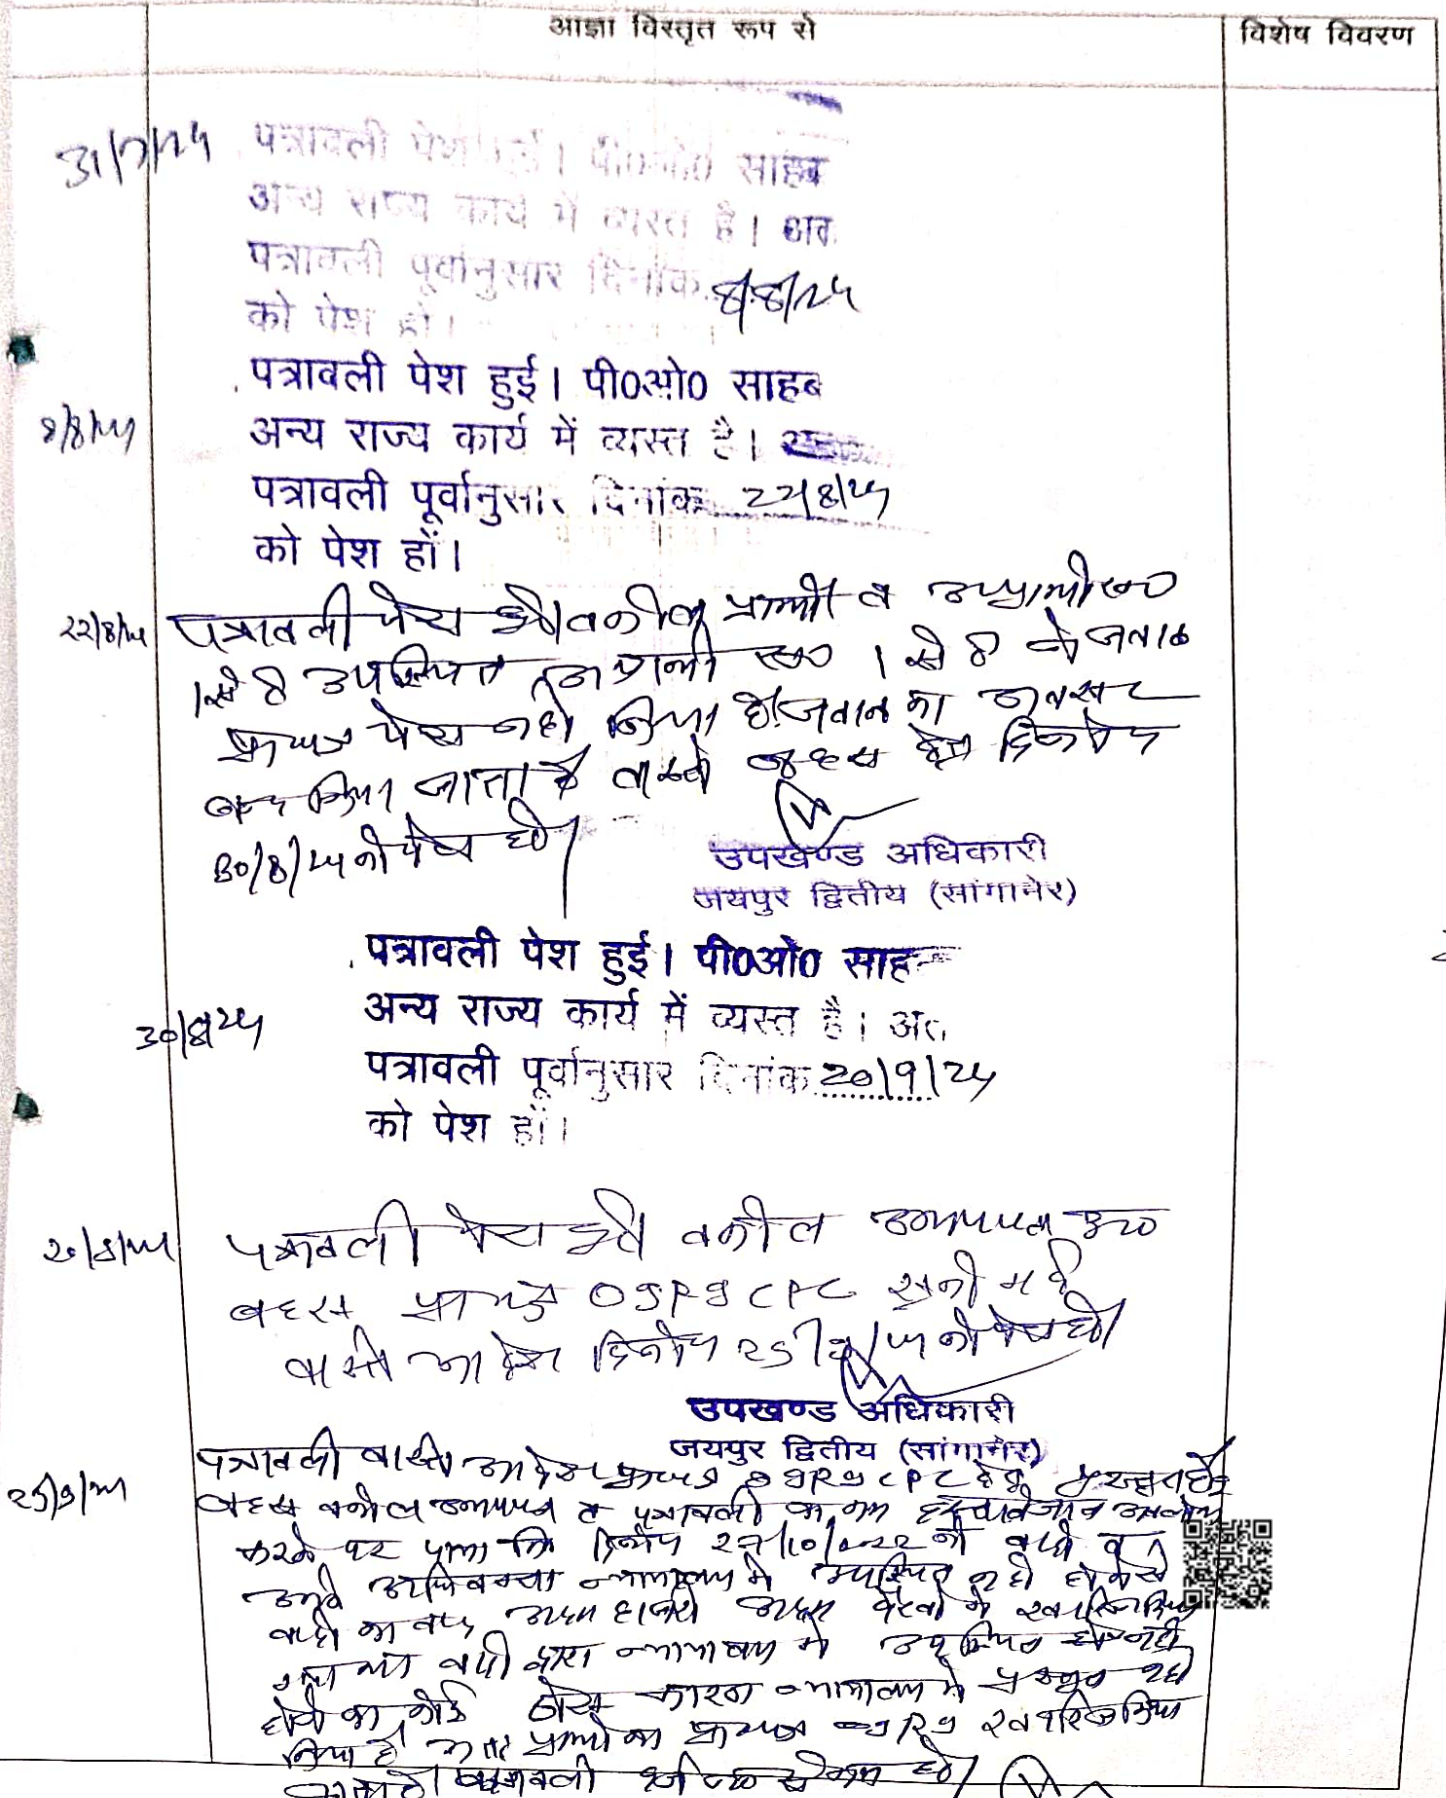 आज्ञा विस्तृत रूप से
विशेष विवरण
31/7/24 पत्रावली पेश हुई। पी0ओ0 साहब
अन्य राज्य कार्य में व्यस्त है। अत
पत्रावली पूर्वानुसार दिनांक 8/8/24
को पेश हो।
पत्रावली पेश हुई। पी0ओ0 साहब
8/8/24 अन्य राज्य कार्य में व्यस्त है।
पत्रावली पूर्वानुसार दिनांक 22/8/24
को पेश हों।
22/8/24 पत्रावली पेश हुई। वकील प्रार्थी व अप्रार्थी सं0
1 से 8 उपस्थित अप्रार्थी सं0 1 से 8 ने जवाब
प्रा०पत्र पेश नही किया है। जवाब का अवसर
बन्द किया जाता है वास्ते बहस हेतु दिनांक
30/8/24 को पेश हो।
उपखण्ड अधिकारी
जयपुर द्वितीय (सांगानेर)
पत्रावली पेश हुई। पी0ओ0 साहब
30/8/24 अन्य राज्य कार्य में व्यस्त है। अत
पत्रावली पूर्वानुसार दिनांक 20/9/24
को पेश हों।
पत्रावली पेश हुई। वकील उभयपक्ष उप०
बहस प्रा०पत्र O9R9 CPC सुनी गई
वास्ते आदेश दिनांक 25/9/24 को पेश हो।
उपखण्ड अधिकारी
जयपुर द्वितीय (सांगानेर)
25/9/24 पत्रावली वास्ते आदेश प्रा०पत्र O9R9 CPC हेतु प्रस्तुत हुई
बहस वकील उभयपक्ष व पत्रावली का मय दस्तावेजात अवलोकन
करने पर पाया कि दिनांक 27/10/2022 को वादी व
उनके अधिवक्ता न्यायालय मे उपस्थित नही होने से
वादी का वाद अदम हाजरी अदम पैरवी मे खारिज किया
गया था वादी द्वारा न्यायालय मे उपस्थित नही
होने का कोई ठोस कारण न्यायालय मे प्रस्तुत नही
किया है। अतः प्रार्थी का प्रा०पत्र O9R9 खारिज किया
जाता है। पत्रावली